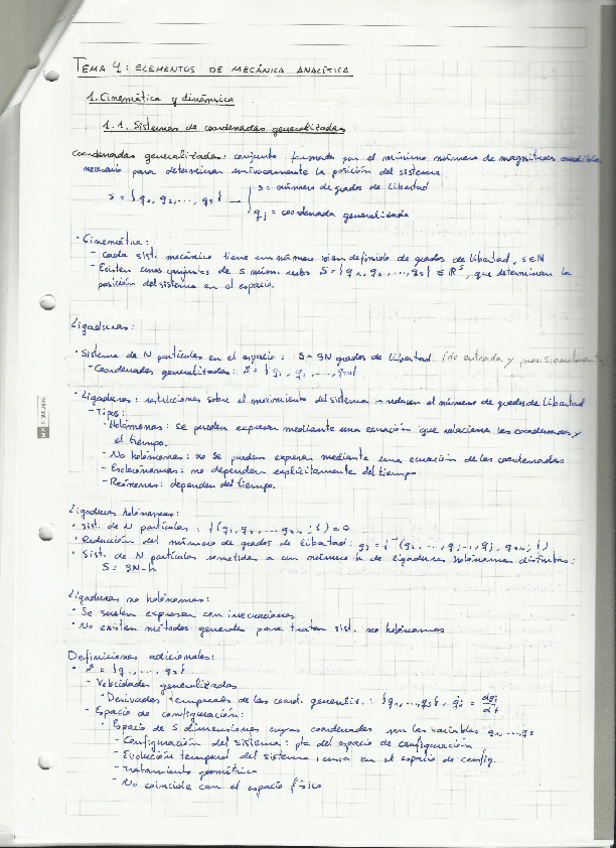 TEMA 4: ELEMENTOS DE MECÁNICA ANALÍTICA
1. Cinemática y dinámica
1.1. Sistemas de coordenadas generalizadas
Coordenadas generalizadas: conjunto formado por el mínimo número de magnitudes
necesario para determinar unívocamente la posición del sistema
S = {q1, q2, ..., qs} → s = número de grados de libertad
qj = coordenada generalizada
· Cinemática:
- Cada sist. mecánico tiene un número bien definido de grados de libertad, s ∈ N
- Existen unos conjuntos de s núm. reales S = {q1, q2, ..., qs} ∈ R^s, que determinan la
posición del sistema en el espacio.
Ligaduras:
· Sistema de N partículas en el espacio: S = 3N grados de libertad (de entrada y
- Coordenadas generalizadas:
· Ligaduras: restricciones sobre el movimiento del sistema → reducen el número de grados de libertad
- Tipos:
· Holónomas: se pueden expresar mediante una ecuación que relaciona las coordenadas y
el tiempo.
· No holónomas: no se pueden expresar mediante una ecuación de las coordenadas
- Esclerónomas: no dependen explícitamente del tiempo
- Reónomas: dependen del tiempo.
Ligaduras holónomas:
· Sist. de N partículas: f(q1, q2, ... q3N; t) = 0
· Reducción del número de grados de libertad:
· Sist. de N partículas sometidas a un número h de ligaduras holónomas distintas:
S = 3N-h
Ligaduras no holónomas:
· Se suelen expresar con inecuaciones
· No existen métodos generales para tratar sist. no holónomos
Definiciones adicionales:
· S = {q1, ..., qs}
- Velocidades generalizadas
· Derivadas temporales de las coord. generaliz.: {q̇1, ..., q̇s}, q̇j = dqj/dt
- Espacio de configuración:
· Espacio de S dimensiones cuyas coordenadas son las variables q1, ..., qs
- Configuración del sistema: pto del espacio de configuración
- Evolución temporal del sistema: curva en el espacio de config.
- Tratamiento geométrico
- No coincide con el espacio físico